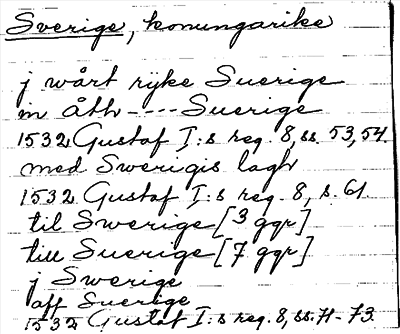 Sverige, konungarike
j wårt rijke Suerige
in åth ---- Suerige
1532 Gustaf I:s reg. 8, ss. 53, 54.
med Swerigis lagh
1532 Gustaf I:s reg. 8, s. 61.
til Swerige [3 ggr]
till Suerige [7 ggr]
j Swerige
aff Suerige
1532 Gustaf I:s reg. 8, ss. 71-73.